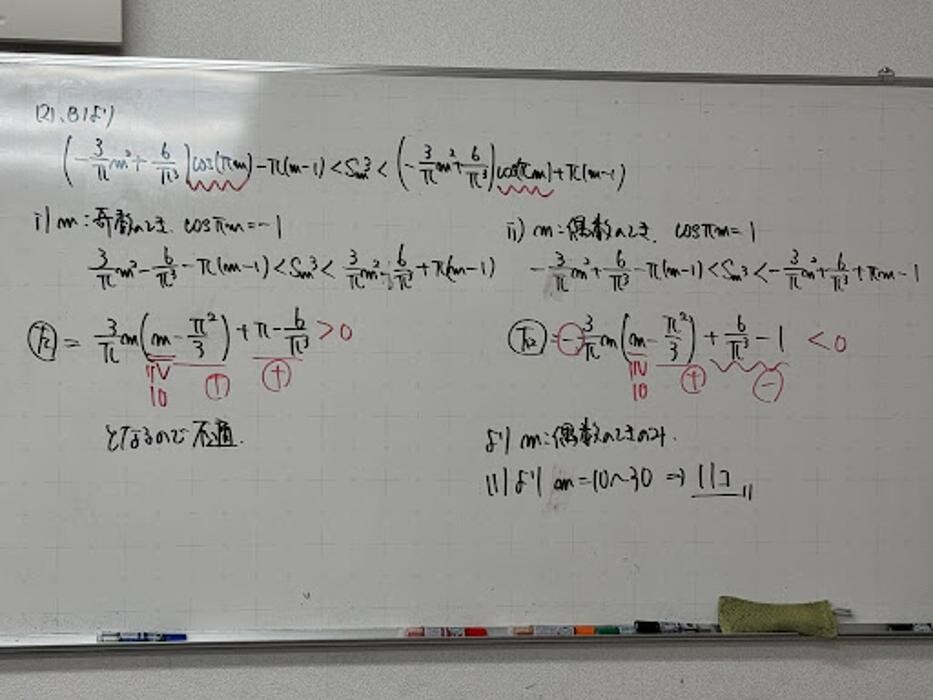 (2), (3)より
(-3/π m² + 6/π³)cos(πm) - π(m-1) < Sm³ < (-3/π m² + 6/π³)cos(πm) + π(m-1)
i) m:奇数のとき. cosπm = -1
3/π m² - 6/π³ - π(m-1) < Sm³ < 3/π m² - 6/π³ + π(m-1)
左 = 3/π m(m - π²/3) + π - 6/π³ > 0
≧ 10 + +
となるので 不適.
ii) m:偶数のとき. cosπm = 1
-3/π m² + 6/π³ - π(m-1) < Sm³ < -3/π m² + 6/π³ + πm - 1
右 = -3/π m(m - π²/3) + 6/π³ - 1 < 0
≧ 10 + -
より m:偶数のときのみ.
(1)より m = 10~30 ⇒ 11コ